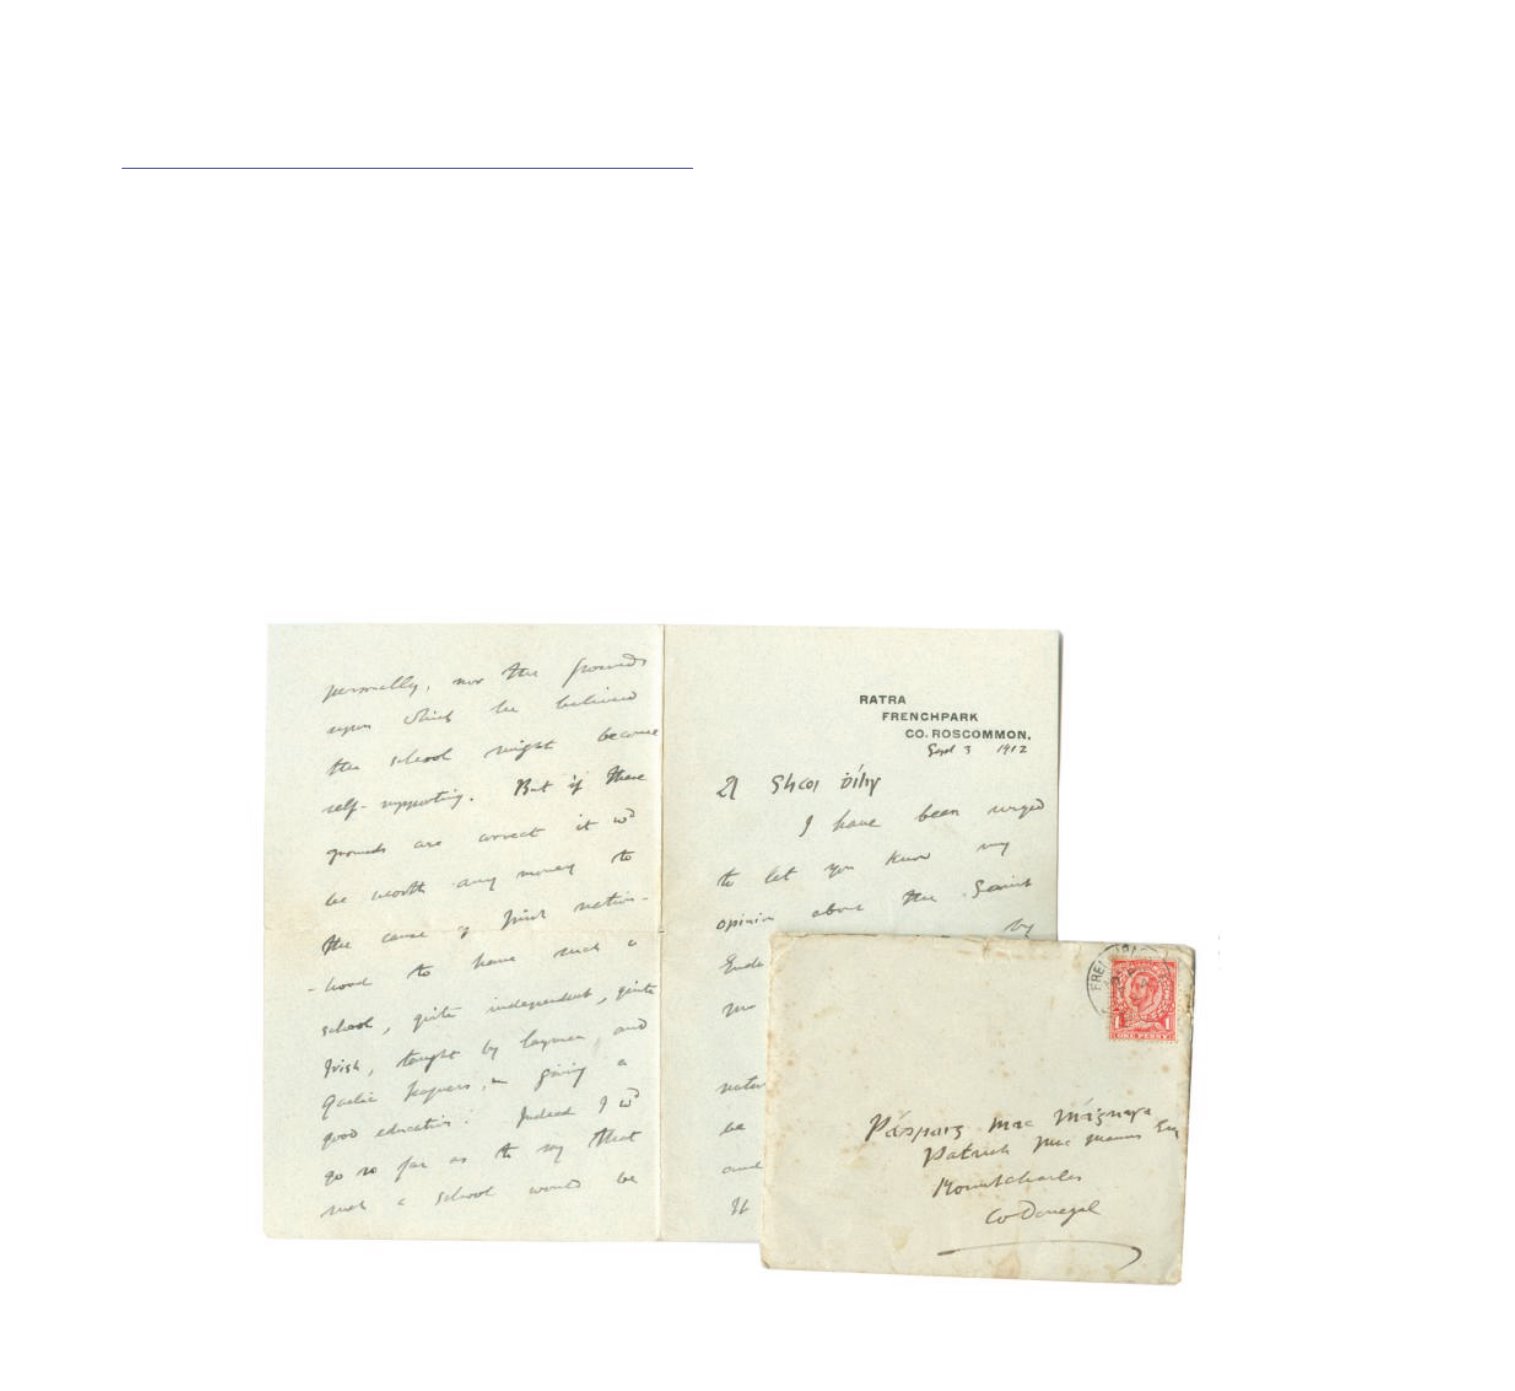 personally, nor the grounds
upon which he believed
the school might become
self-supporting. But if these
grounds are correct it wd
be worth any money to
the cause of Irish nation-
-hood to have such a
school, quite independent, quite
Irish, taught by laymen, and
Gaelic Leaguers, giving a
good education. Indeed I wd
go so far as to say that
such a school would be
RATRA
FRENCHPARK
CO. ROSCOMMON.
Sept 3 1912
A Shaoi ḋílis
I have been urged
to let you know my
opinion about the Saint
Enda by
and
be
It
FRE
1 1
ONE PENNY
Pádraig Mac
Patrick Mac Manus Esq
Mountcharles
Co Donegal